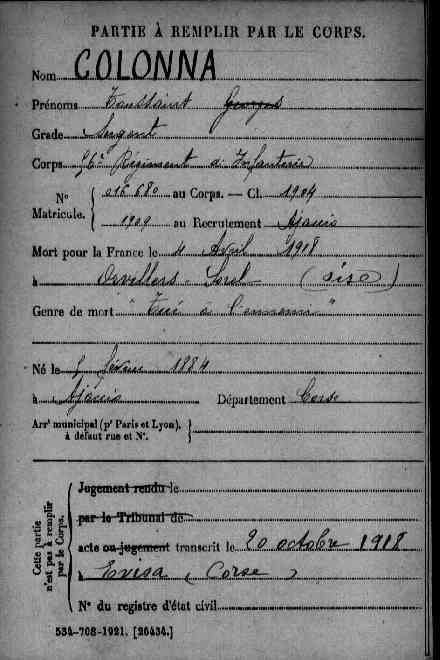 PARTIE À REMPLIR PAR LE CORPS.
Nom COLONNA
Prénoms Toussaint Georges
Grade Sergent
Corps 56e Régiment d'Infanterie
N° Matricule. { 016.680 au Corps. — Cl. 1904
1909 au Recrutement Ajaccio
Mort pour la France le 4 Avril 1918
à Orvillers-Sorel (Oise)
Genre de mort "Tué à l'ennemi"
Né le 5 février 1884
à Ajaccio Département Corse
Arrt municipal (pr Paris et Lyon),
à défaut rue et N°.
Cette partie n'est pas à remplir par le Corps.
Jugement rendu le
par le Tribunal de
acte ou jugement transcrit le 20 octobre 1918
à Evisa (Corse)
N° du registre d'état civil
534-708-1921. [26434.]